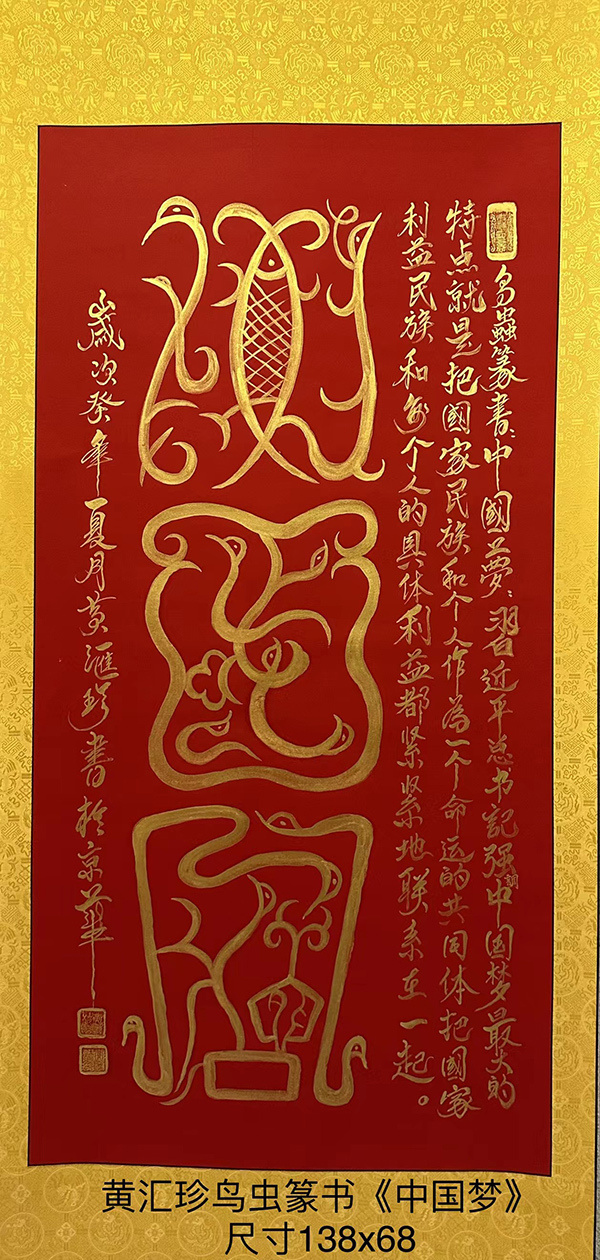 鸟蟲篆書：中國夢：習近平总书記强訓中国梦最大的
特点就是把國家民族和个人作為一个命运的共同体把國家
利益民族和每个人的具体利益都紧紧地联系在一起。
中国夢
歲次癸卯年夏月黄滙珍書於京華
黄汇珍鸟虫篆书《中国梦》
尺寸138x68